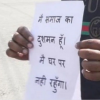 मैं समाज का
दुश्मन हूँ।
मैं घर पर
नहीं रहूँगा।